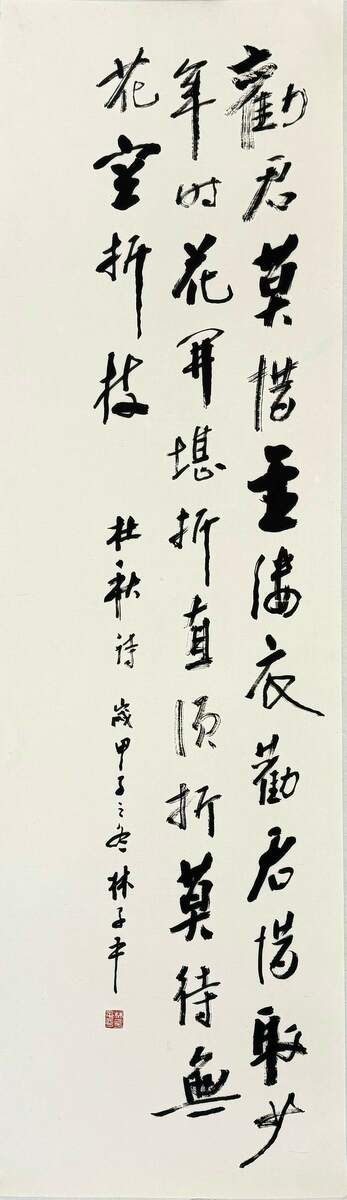 勸君莫惜金縷衣勸君惜取少
年時花開堪折直須折莫待無
花空折枝
杜秋詩 歲甲子之冬 林子平